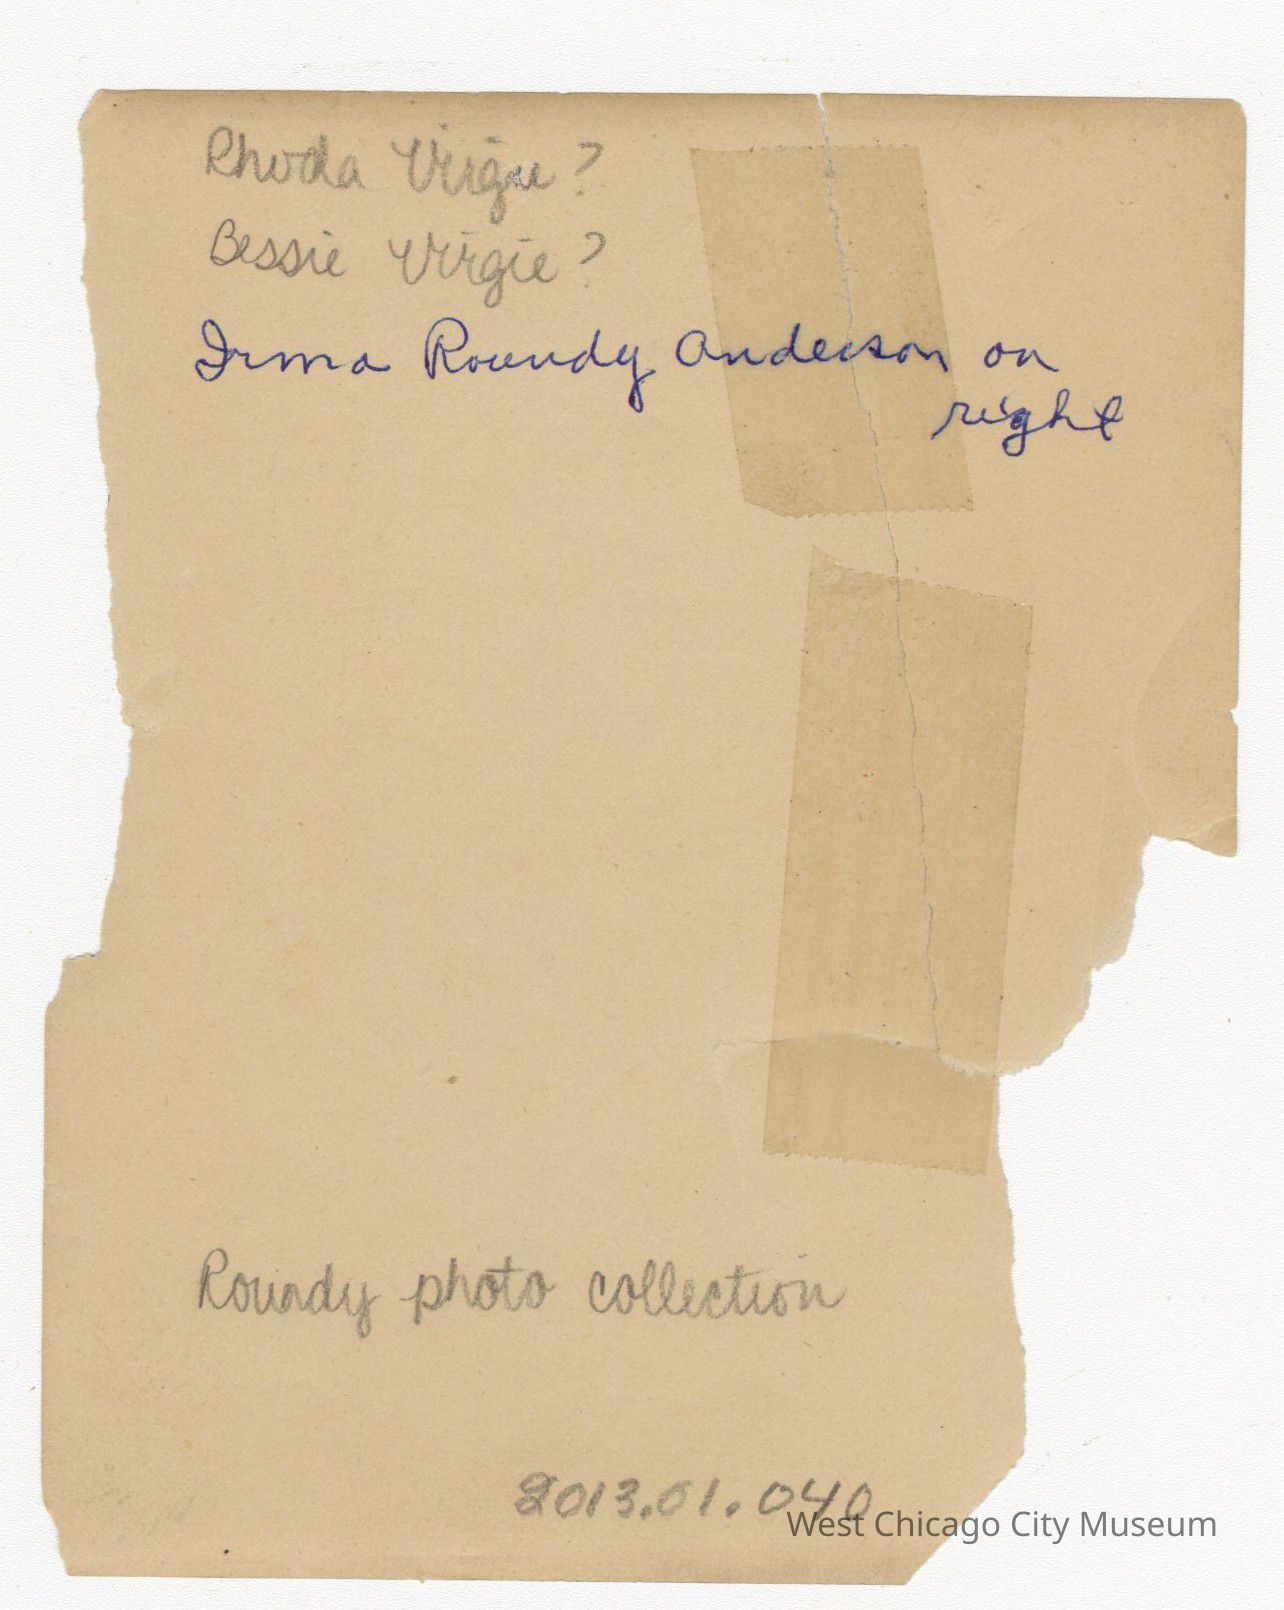 Rhoda Virgie?
Bessie Virgie?
Irma Roundy Anderson on
right
Roundy photo collection
2013.01.040
West Chicago City Museum